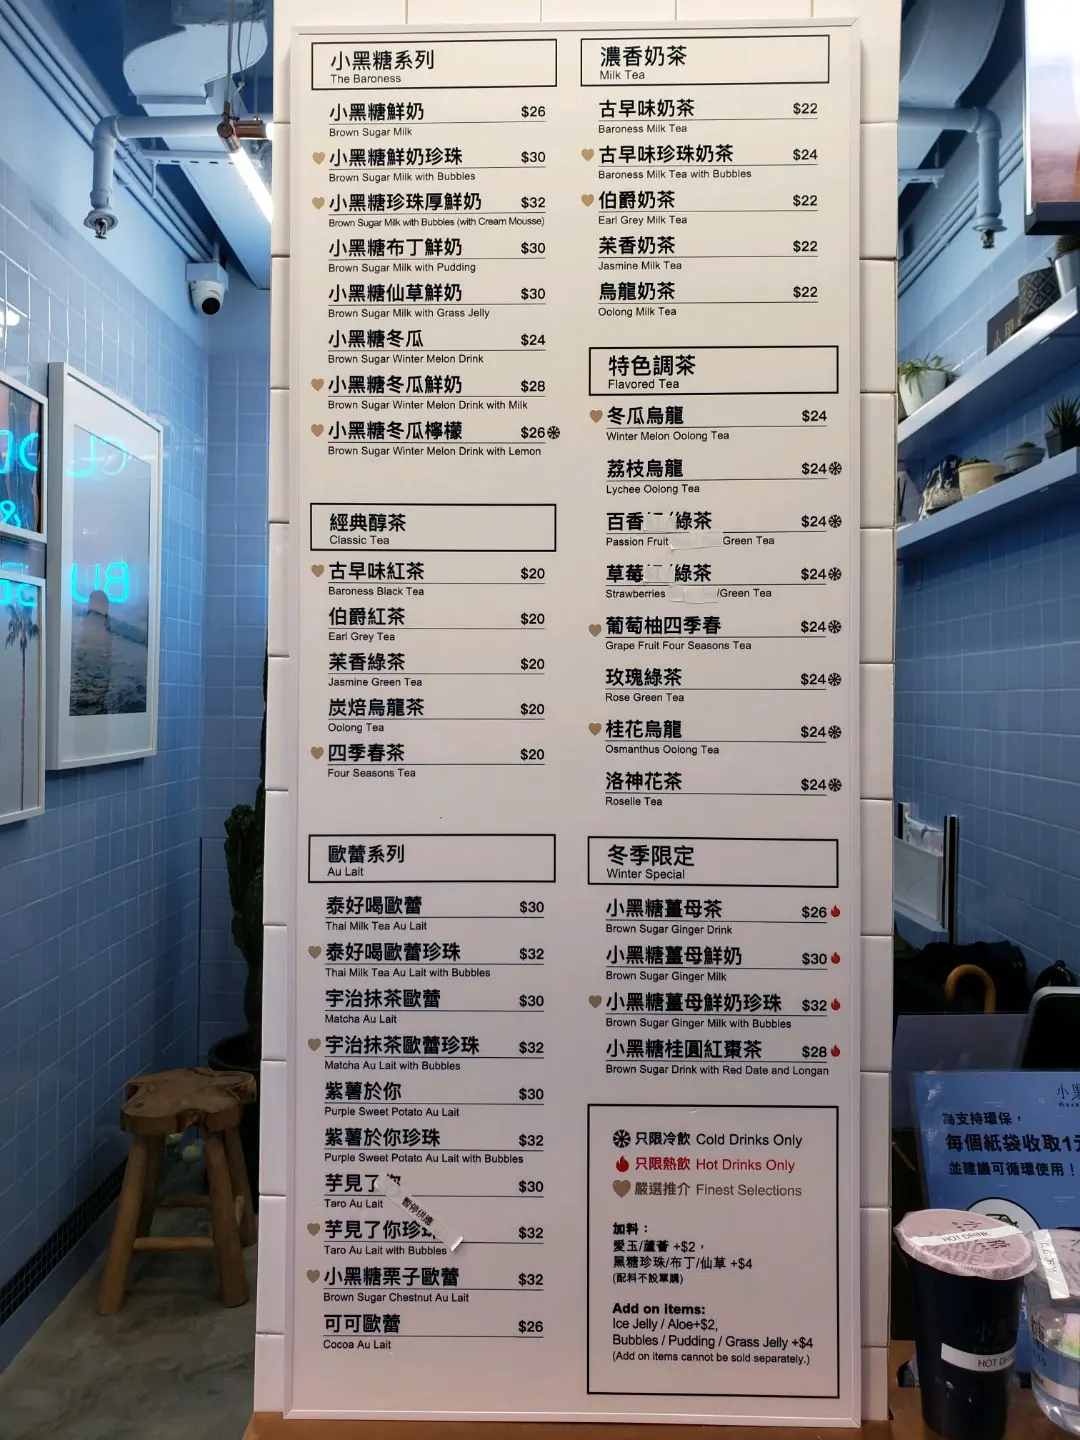 小黑糖系列
The Baroness
小黑糖鮮奶 $26
Brown Sugar Milk
小黑糖鮮奶珍珠 $30
Brown Sugar Milk with Bubbles
小黑糖珍珠厚鮮奶 $32
Brown Sugar Milk with Bubbles (with Cream Mousse)
小黑糖布丁鮮奶 $30
Brown Sugar Milk with Pudding
小黑糖仙草鮮奶 $30
Brown Sugar Milk with Grass Jelly
小黑糖冬瓜 $24
Brown Sugar Winter Melon Drink
小黑糖冬瓜鮮奶 $28
Brown Sugar Winter Melon Drink with Milk
小黑糖冬瓜檸檬 $26
Brown Sugar Winter Melon Drink with Lemon
經典醇茶
Classic Tea
古早味紅茶 $20
Baroness Black Tea
伯爵紅茶 $20
Earl Grey Tea
茉香綠茶 $20
Jasmine Green Tea
炭焙烏龍茶 $20
Oolong Tea
四季春茶 $20
Four Seasons Tea
歐蕾系列
Au Lait
泰好喝歐蕾 $30
Thai Milk Tea Au Lait
泰好喝歐蕾珍珠 $32
Thai Milk Tea Au Lait with Bubbles
宇治抹茶歐蕾 $30
Matcha Au Lait
宇治抹茶歐蕾珍珠 $32
Matcha Au Lait with Bubbles
紫薯於你 $30
Purple Sweet Potato Au Lait
紫薯於你珍珠 $32
Purple Sweet Potato Au Lait with Bubbles
芋見了 $30
Taro Au Lait
暫停供應
芋見了你珍 $32
Taro Au Lait with Bubbles
小黑糖栗子歐蕾 $32
Brown Sugar Chestnut Au Lait
可可歐蕾 $26
Cocoa Au Lait
濃香奶茶
Milk Tea
古早味奶茶 $22
Baroness Milk Tea
古早味珍珠奶茶 $24
Baroness Milk Tea with Bubbles
伯爵奶茶 $22
Earl Grey Milk Tea
茉香奶茶 $22
Jasmine Milk Tea
烏龍奶茶 $22
Oolong Milk Tea
特色調茶
Flavored Tea
冬瓜烏龍 $24
Winter Melon Oolong Tea
荔枝烏龍 $24
Lychee Oolong Tea
百香 /綠茶 $24
Passion Fruit Green Tea
草莓 /綠茶 $24
Strawberries /Green Tea
葡萄柚四季春 $24
Grape Fruit Four Seasons Tea
玫瑰綠茶 $24
Rose Green Tea
桂花烏龍 $24
Osmanthus Oolong Tea
洛神花茶 $24
Roselle Tea
冬季限定
Winter Special
小黑糖薑母茶 $26
Brown Sugar Ginger Drink
小黑糖薑母鮮奶 $30
Brown Sugar Ginger Milk
小黑糖薑母鮮奶珍珠 $32
Brown Sugar Ginger Milk with Bubbles
小黑糖桂圓紅棗茶 $28
Brown Sugar Drink with Red Date and Longan
只限冷飲 Cold Drinks Only
只限熱飲 Hot Drinks Only
嚴選推介 Finest Selections
加料：
愛玉/蘆薈 +$2，
黑糖珍珠/布丁/仙草 +$4
(配料不設單購)
Add on items:
Ice Jelly / Aloe+$2,
Bubbles / Pudding / Grass Jelly +$4
(Add on items cannot be sold separately.)
為支持環保，
每個紙袋收取1元
並建議可循環使用！
HOT DRINK